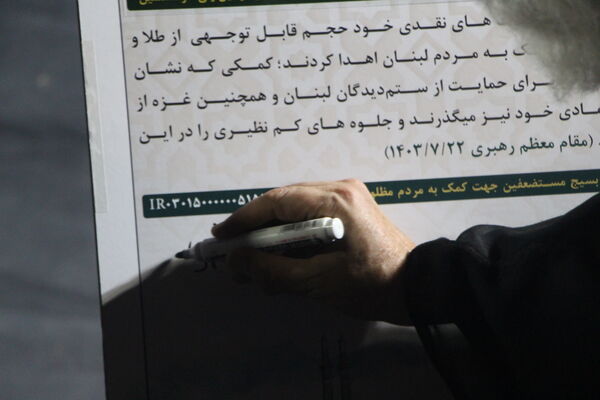 های نقدی خود حجم قابل توجهی از طلا و
به مردم لبنان اهدا کردند؛ کمکی که نشان
برای حمایت از ستم‌دیدگان لبنان و همچنین غزه از
مادی خود نیز میگذرند و جلوه های کم نظیری را در این
(مقام معظم رهبری ۱۴۰۳/۷/۲۲)
بسیج مستضعفین جهت کمک به مردم
IR۰۳۰۱۵۰۰۰۰۰۰۵۱۸